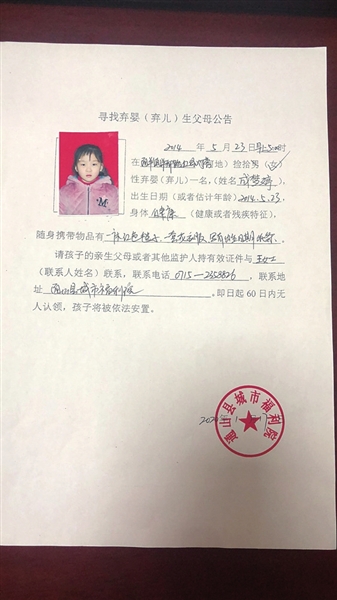 寻找弃婴（弃儿）生父母公告
2014 年 5 月 23 日 时
在 地）捡拾男（女）
性弃婴（弃儿）一名，（姓名 成梦婷），
出生日期（或者估计年龄）2014.5.23.
身体 健康 （健康或者残疾特征），
随身携带物品有 出生日期
请孩子的亲生父母或者其他监护人持有效证件与 王女士
（联系人姓名）联系，联系电话 0715—2358826，联系地
址 通山县城市福利院 。即日起 60 日内无
人认领，孩子将被依法安置。
通山县城市福利院